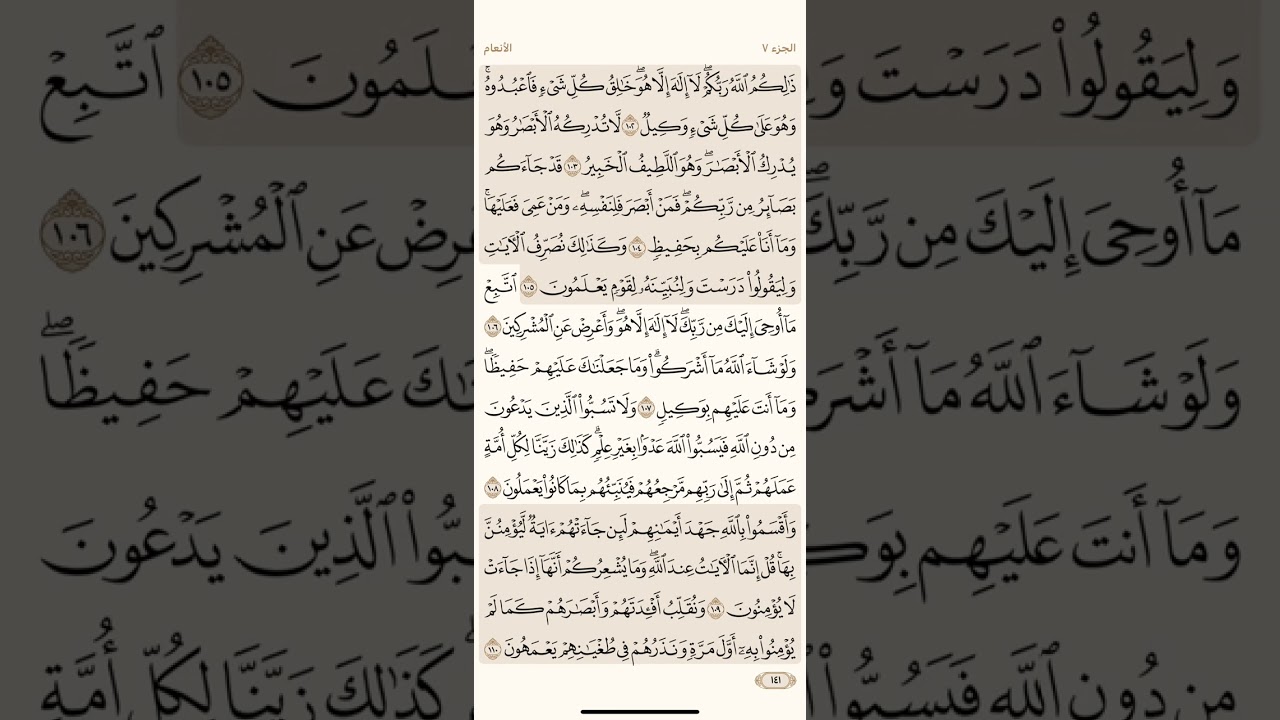 الجزء ٧
الأنعام
ذَٰلِكُمُ ٱللَّهُ رَبُّكُمْ ۖ لَآ إِلَٰهَ إِلَّا هُوَ ۖ خَٰلِقُ كُلِّ شَىْءٍ فَٱعْبُدُوهُ ۚ
وَهُوَ عَلَىٰ كُلِّ شَىْءٍ وَكِيلٌ ١٠٢ لَّا تُدْرِكُهُ ٱلْأَبْصَٰرُ وَهُوَ
يُدْرِكُ ٱلْأَبْصَٰرَ ۖ وَهُوَ ٱللَّطِيفُ ٱلْخَبِيرُ ١٠٣ قَدْ جَآءَكُم
بَصَآئِرُ مِن رَّبِّكُمْ ۖ فَمَنْ أَبْصَرَ فَلِنَفْسِهِۦ ۖ وَمَنْ عَمِىَ فَعَلَيْهَا ۚ
وَمَآ أَنَا۠ عَلَيْكُم بِحَفِيظٍ ١٠٤ وَكَذَٰلِكَ نُصَرِّفُ ٱلْءَايَٰتِ
وَلِيَقُولُوا۟ دَرَسْتَ وَلِنُبَيِّنَهُۥ لِقَوْمٍ يَعْلَمُونَ ١٠٥ ٱتَّبِعْ
مَآ أُوحِىَ إِلَيْكَ مِن رَّبِّكَ ۖ لَآ إِلَٰهَ إِلَّا هُوَ ۖ وَأَعْرِضْ عَنِ ٱلْمُشْرِكِينَ ١٠٦
وَلَوْ شَآءَ ٱللَّهُ مَآ أَشْرَكُوا۟ ۗ وَمَا جَعَلْنَٰكَ عَلَيْهِمْ حَفِيظًا ۖ
وَمَآ أَنتَ عَلَيْهِم بِوَكِيلٍ ١٠٧ وَلَا تَسُبُّوا۟ ٱلَّذِينَ يَدْعُونَ
مِن دُونِ ٱللَّهِ فَيَسُبُّوا۟ ٱللَّهَ عَدْوًۢا بِغَيْرِ عِلْمٍ ۗ كَذَٰلِكَ زَيَّنَّا لِكُلِّ أُمَّةٍ
عَمَلَهُمْ ثُمَّ إِلَىٰ رَبِّهِم مَّرْجِعُهُمْ فَيُنَبِّئُهُم بِمَا كَانُوا۟ يَعْمَلُونَ ١٠٨
وَأَقْسَمُوا۟ بِٱللَّهِ جَهْدَ أَيْمَٰنِهِمْ لَئِن جَآءَتْهُمْ ءَايَةٌ لَّيُؤْمِنُنَّ
بِهَا ۚ قُلْ إِنَّمَا ٱلْءَايَٰتُ عِندَ ٱللَّهِ ۖ وَمَا يُشْعِرُكُمْ أَنَّهَآ إِذَا جَآءَتْ
لَا يُؤْمِنُونَ ١٠٩ وَنُقَلِّبُ أَفْـِٔدَتَهُمْ وَأَبْصَٰرَهُمْ كَمَا لَمْ
يُؤْمِنُوا۟ بِهِۦٓ أَوَّلَ مَرَّةٍ وَنَذَرُهُمْ فِى طُغْيَٰنِهِمْ يَعْمَهُونَ ١١٠
١٤١